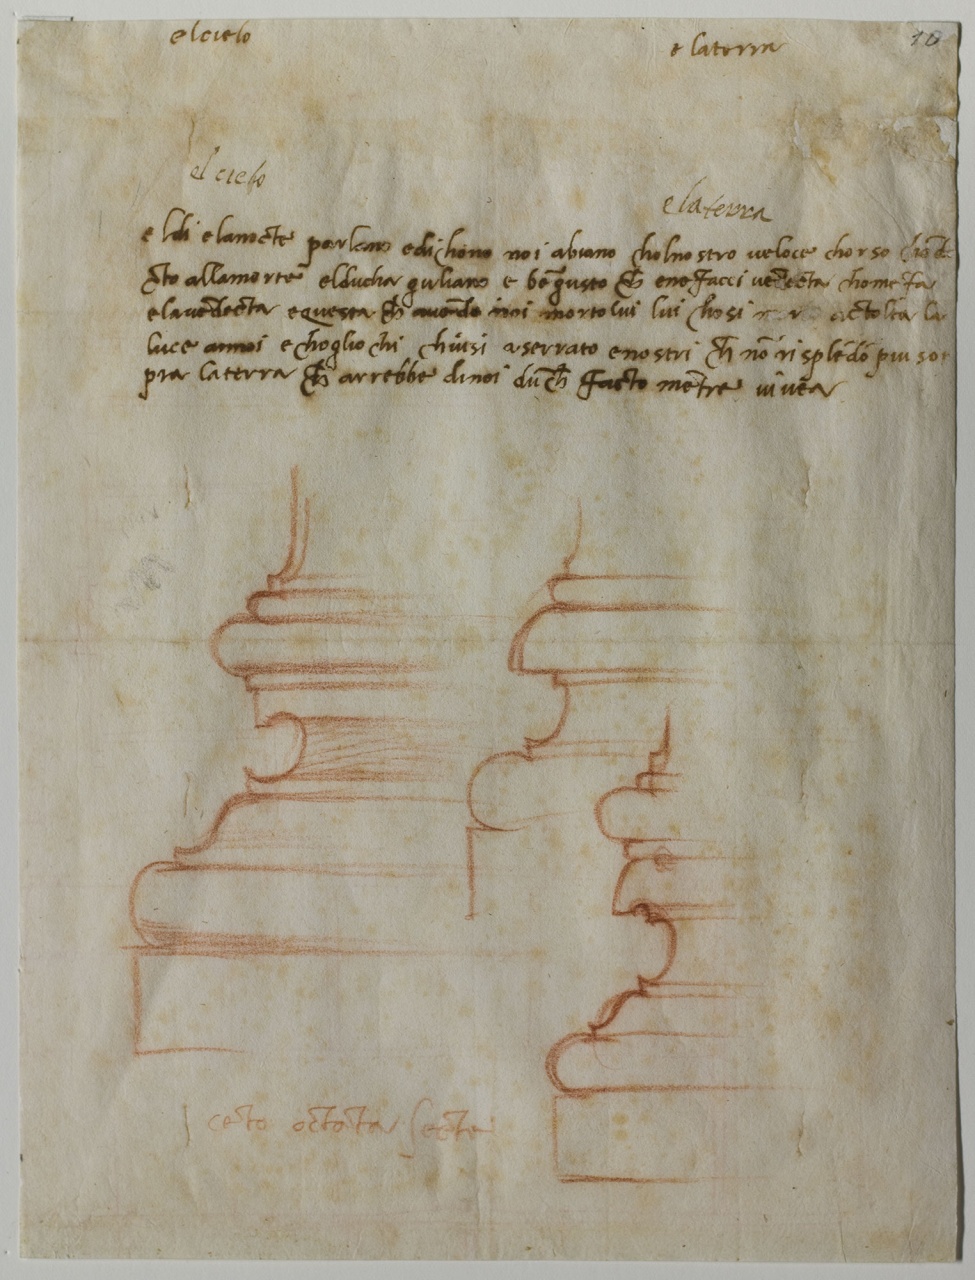 el cielo
e la terra
10
el cielo
e la terra
e ldi e lanocte parlano e dichono noi abiano cholnostro veloce chorso chōdo
cto alla morte elducha guliano e bē gusto ch̄ ene facci vēdecta chome fa
e lavēdecta e questa ch̄ avendo noi morto lui lui chosi acto lta la
luce annoi e chogliochi chiusi a serrato e nostri ch̄ nō risplēdō piu sop
pra la terra ch̄ arrebbe di noi dūch̄ facto mētre vivea
cēto octāta secte